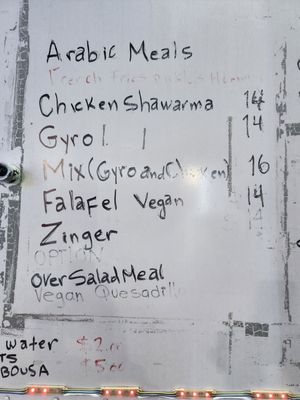 Arabic Meals
French Fries
Chicken Shawarma 14
Gyro 14
Mix (Gyro and Chicken) 16
Falafel Vegan 14
Zinger 14
OPTION
Over Salad Meal
Vegan Quesadilla
water $2.00
TS
BOUSA $5.00